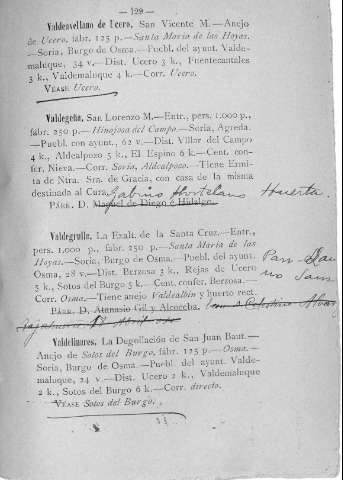 — 129 —
Valdeavellano de Ucero, San Vicente M.—Anejo
de Ucero, fábr. 125 p.—Santa María de las Hoyas.
—Soria, Burgo de Osma.—Puebl. del ayunt. Valde-
maluque, 34 v.—Dist. Ucero 3 k., Fuentecantales
3 k., Valdemaluque 4 k.—Corr. Ucero.
VÉASE Ucero.
Valdegeña, San Lorenzo M.—Entr., pers. 1.000 p.,
fábr. 250 p.—Hinojosa del Campo.—Soria, Agreda.
—Puebl. con ayunt., 62 v.—Dist. Villar del Campo
4 k., Aldealpozo 5 k., El Espino 6 k.—Cent. con-
fer. Nieva.—Corr. Soria, Aldealpozo.—Tiene Ermi-
ta de Ntra. Sra. de Gracia, con casa de la misma
destinada al Cura. Gabino Hortelano Huerta.
PÁRR. D. Manuel de Diego é Hidalgo
Valdegrulla, La Exalt. de la Santa Cruz.—Entr.,
pers. 1.000 p., fábr. 250 p.—Santa María de las
Hoyas.—Soria, Burgo de Osma.—Puebl. del ayunt.
Osma, 28 v.—Dist. Berzosa 3 k., Rejas de Ucero
5 k., Sotos del Burgo 5 k.—Cent. confer. Berzosa.—
Corr. Osma.—Tiene anejo Valdealbín y huerto rect.
PÁRR. D. Atanasio Gil y Alcoceba,
Valdelinares, La Degollación de San Juan Baut.—
Anejo de Sotos del Burgo, fábr. 125 p.—Osma.—
Soria, Burgo de Osma.—Puebl. del ayunt. Valde-
maluque, 24 v.—Dist. Ucero 2 k., Valdemaluque
2 k., Sotos del Burgo 6 k.—Corr. directo.
VÉASE Sotos del Burgo.